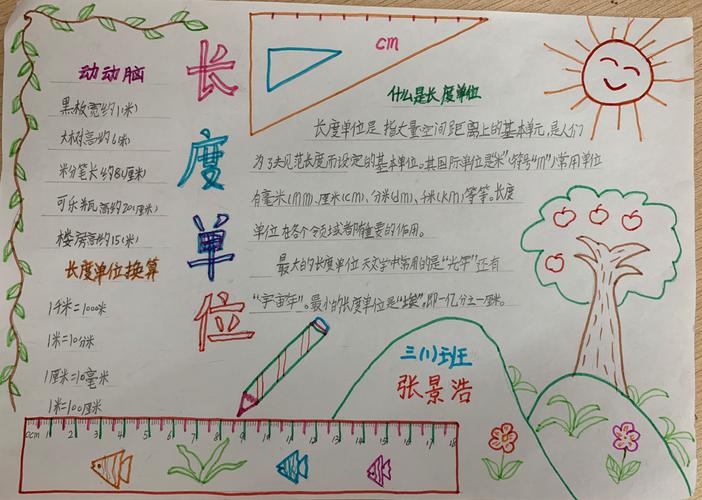 长度单位
动动脑
黑板宽约1(米)
大树高约6米
粉笔长约8(厘米)
可乐瓶高约20(厘米)
楼房高约15(米)
长度单位换算
1千米=1000米
1米=10分米
1厘米=10毫米
1米=100厘米
cm
什么是长度单位
长度单位是指丈量空间距离上的基本单元,是人们
为了规范长度而设定的基本单位。其国际单位是"米"(符号"m"),常用单位
有毫米(mm)、厘米(cm)、分米(dm)、千米(km)等等。长度
单位在各个领域都有重要的作用。
最大的长度单位天文学中常用的是"光年"还有
"宇宙年"。最小的长度单位是"埃",即一亿分之一厘米。
三(1)班
张景浩
0cm 1 2 3 4 5 6 7 8 9 10 11 12 13 14 15 16 17 18